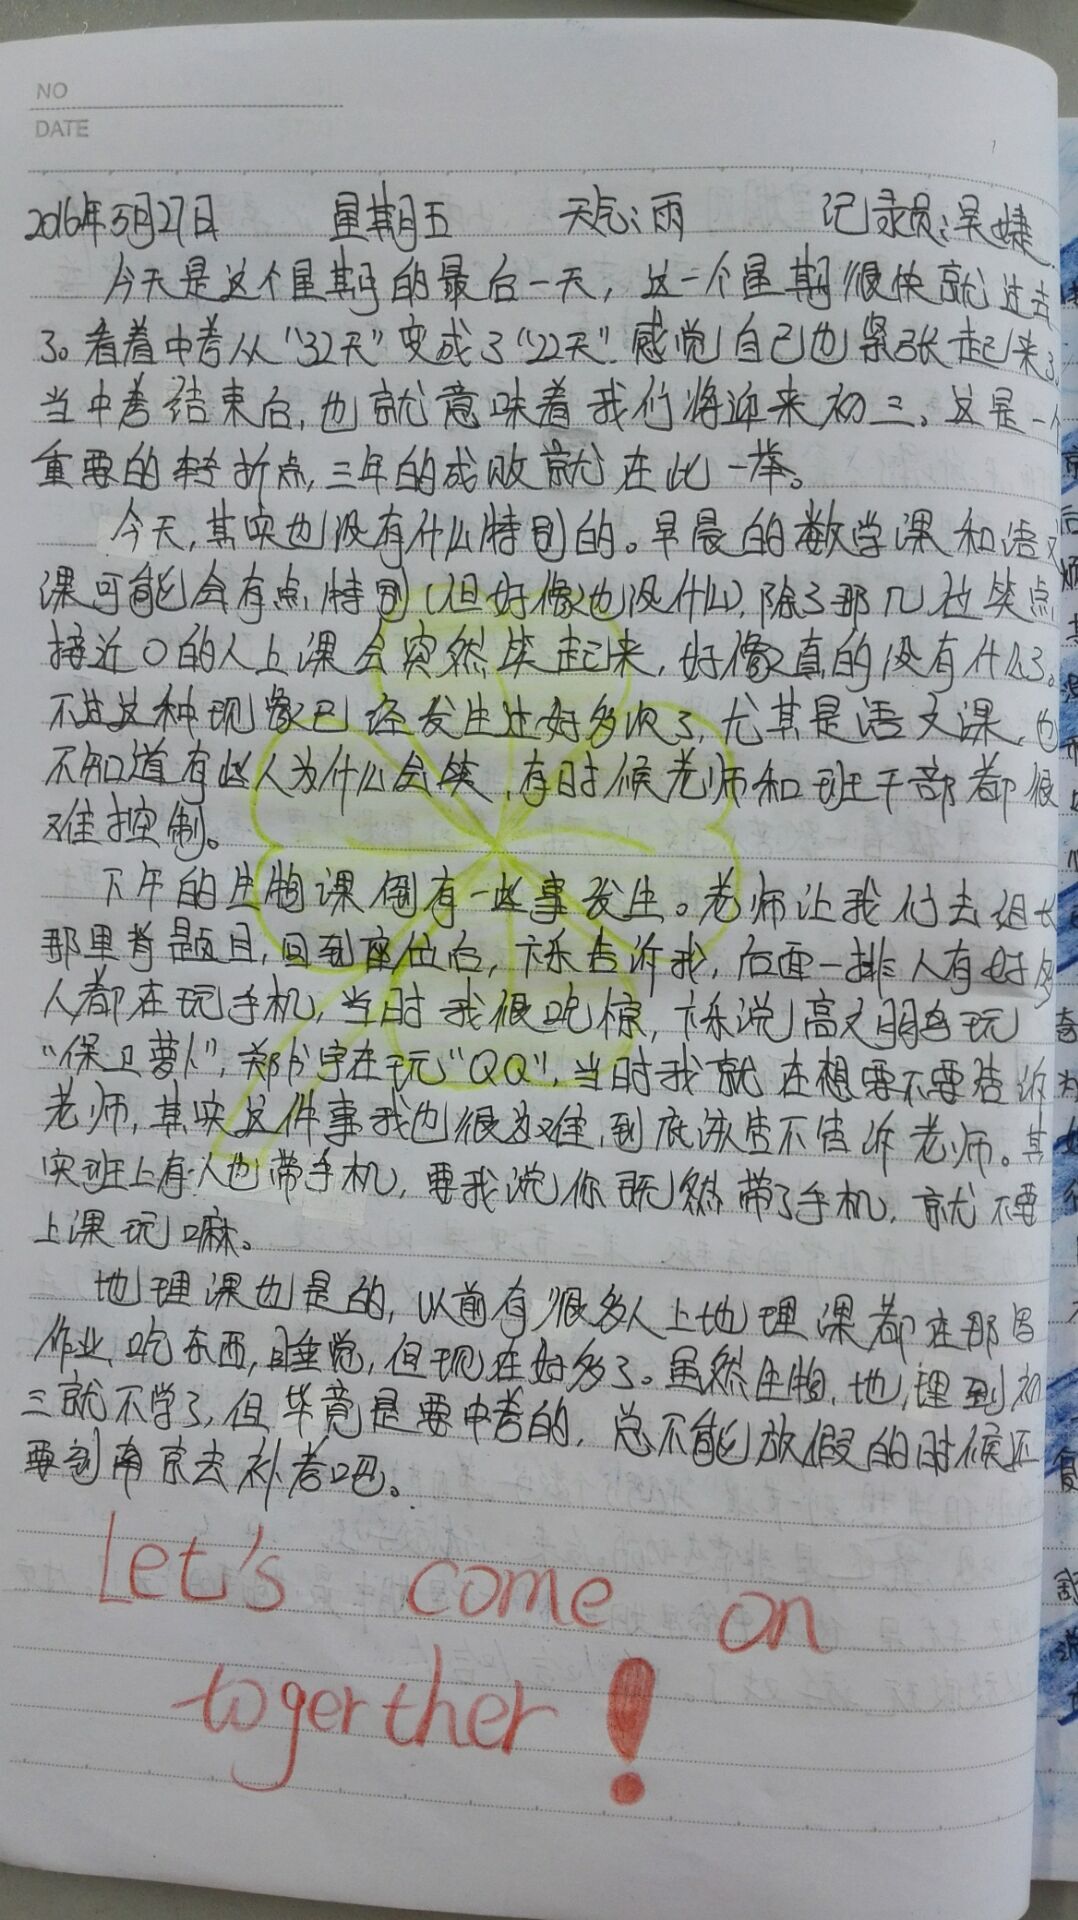 NO
DATE
2016年5月27日 星期五 天气:雨 记录员:吴婕
今天是这个星期的最后一天，这一个星期很快就过去
了。看着中考从“32天”变成了“22天”感觉自己也紧张起来了。
当中考结束后，也就意味着我们将迎来初三。这是一个
重要的转折点，三年的成败就在此一举。
今天，其实也没有什么特别的。早晨的数学课和语文
课可能会有点特别（但好像也没什么），除了那几位笑点
接近0的人上课会突然笑起来，好像真的没有什么了。
不过这种现象已经发生过好多次了，尤其是语文课，也
不知道有些人为什么会笑，有时候老师和班干部都很
难控制。
下午的生物课倒有一些事发生。老师让我们去组长
那里背题目，回到座位后，卞乐告诉我，后面一排人有好多
人都在玩手机，当时我很吃惊，卞乐说高文明在玩
“保卫萝卜”，郑宇在玩“QQ”，当时我就在想要不要告诉
老师，其实这件事我也很为难，到底该告不告诉老师。其
实班上有人也带手机，要我说你既然带了手机，就不要
上课玩嘛。
地理课也是的，以前有很多人上地理课都在那写
作业，吃东西，睡觉，但现在好多了。虽然生物，地理到初
三就不学了，但毕竟是要中考的，总不能放假的时候还
要到南京去补考吧。
Let's come on
togerther！